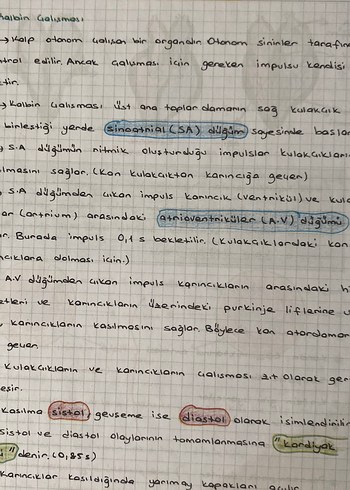 Kalbin Çalışması
→ Kalp otonom çalışan bir organdır. Otonom sinirler tarafın
trol edilir. Ancak çalışması için gereken impulsu kendisi
tir.
→ Kalbin çalışması üst ana toplardamarın sağ kulakçık
birleştiği yerde sinoatrial (SA) düğüm sayesinde başlar
S.A düğümün ritmik oluşturduğu impulslar kulakçıkları
ılmasını sağlar. (Kan kulakçıktan karıncığa geçer)
S.A düğümden çıkan impuls karıncık (ventrikül) ve kula
lar (artrium) arasındaki atrioventriküler (A.V) düğümü
ır. Burada impuls 0,1 s bekletilir. (Kulakçıklardaki kan
ncıklara dolması için.)
A.V düğümden çıkan impuls karıncıkların arasındaki hi
etleri ve karıncıkların üzerindeki purkinje liflerine u
, karıncıkların kasılmasını sağlar. Böylece kan atardamar
geçer.
Kulakçıkların ve karıncıkların çalışması zıt olarak ger
eşir.
Kasılma sistol, gevşeme ise diastol olarak isimlendirilir
Sistol ve diastol olaylarının tamamlanmasına "kardiyak
" denir. (0,85 s)
Karıncıklar kasıldığında yarımay kapakları açılır